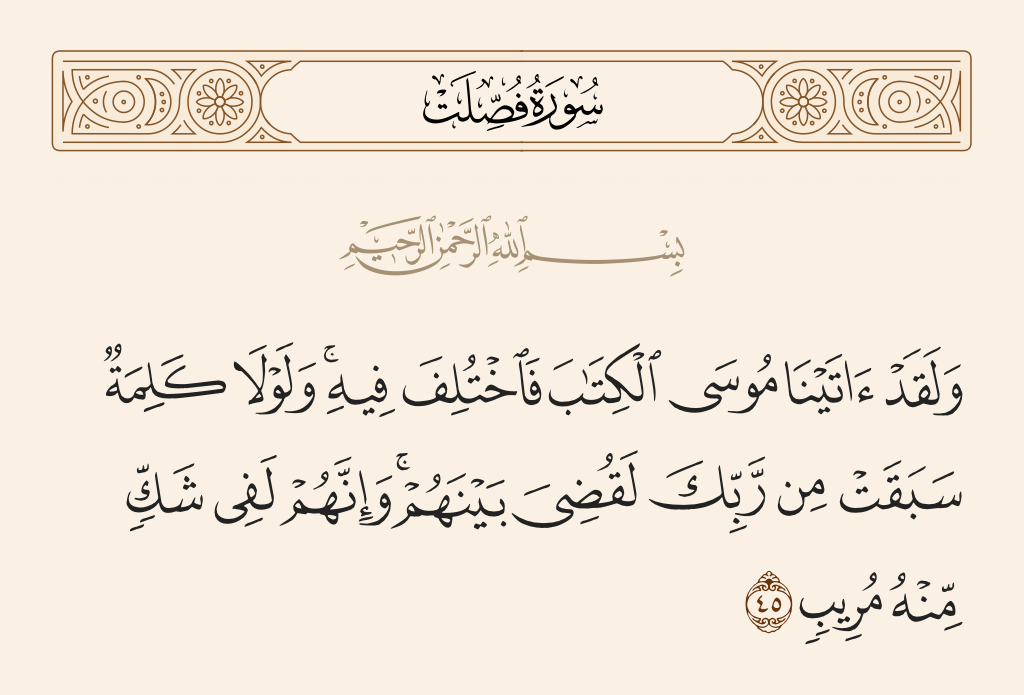 سُورَةُ فُصِّلَتْ
بِسْمِ ٱللَّهِ ٱلرَّحْمَٰنِ ٱلرَّحِيمِ
وَلَقَدْ ءَاتَيْنَا مُوسَى ٱلْكِتَٰبَ فَٱخْتُلِفَ فِيهِ ۚ وَلَوْلَا كَلِمَةٌ
سَبَقَتْ مِن رَّبِّكَ لَقُضِىَ بَيْنَهُمْ ۚ وَإِنَّهُمْ لَفِى شَكٍّ
مِّنْهُ مُرِيبٍ ٤٥